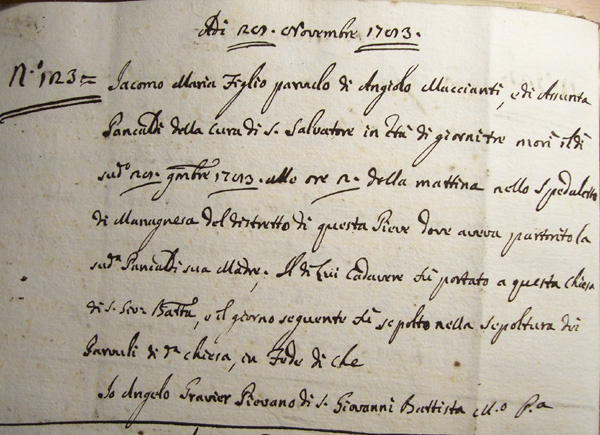 Adi 29. Novembre 1783.
N.° 123= Iacomo Maria Figlio parvulo di Angiolo Muccianti, e di Assunta
Pancaldi della Cura di S. Salvatore in Età di giorni tre morì il dì
sud.° 29. 9mbre 1783. alle ore 2. della mattina nello Spedaletto
di del distretto di questa Pieve dove aveva partorito la
sud.a Pancaldi sua Madre, Il di Lui Cadavere fù portato a questa Chiesa
di S. Gio: Batta, e il giorno seguente fù sepolto nella sepoltura dei
Parvuli di d.a chiesa, in Fede di che
Io Angelo Piovano di S. Giovanni Battista M.o P.a